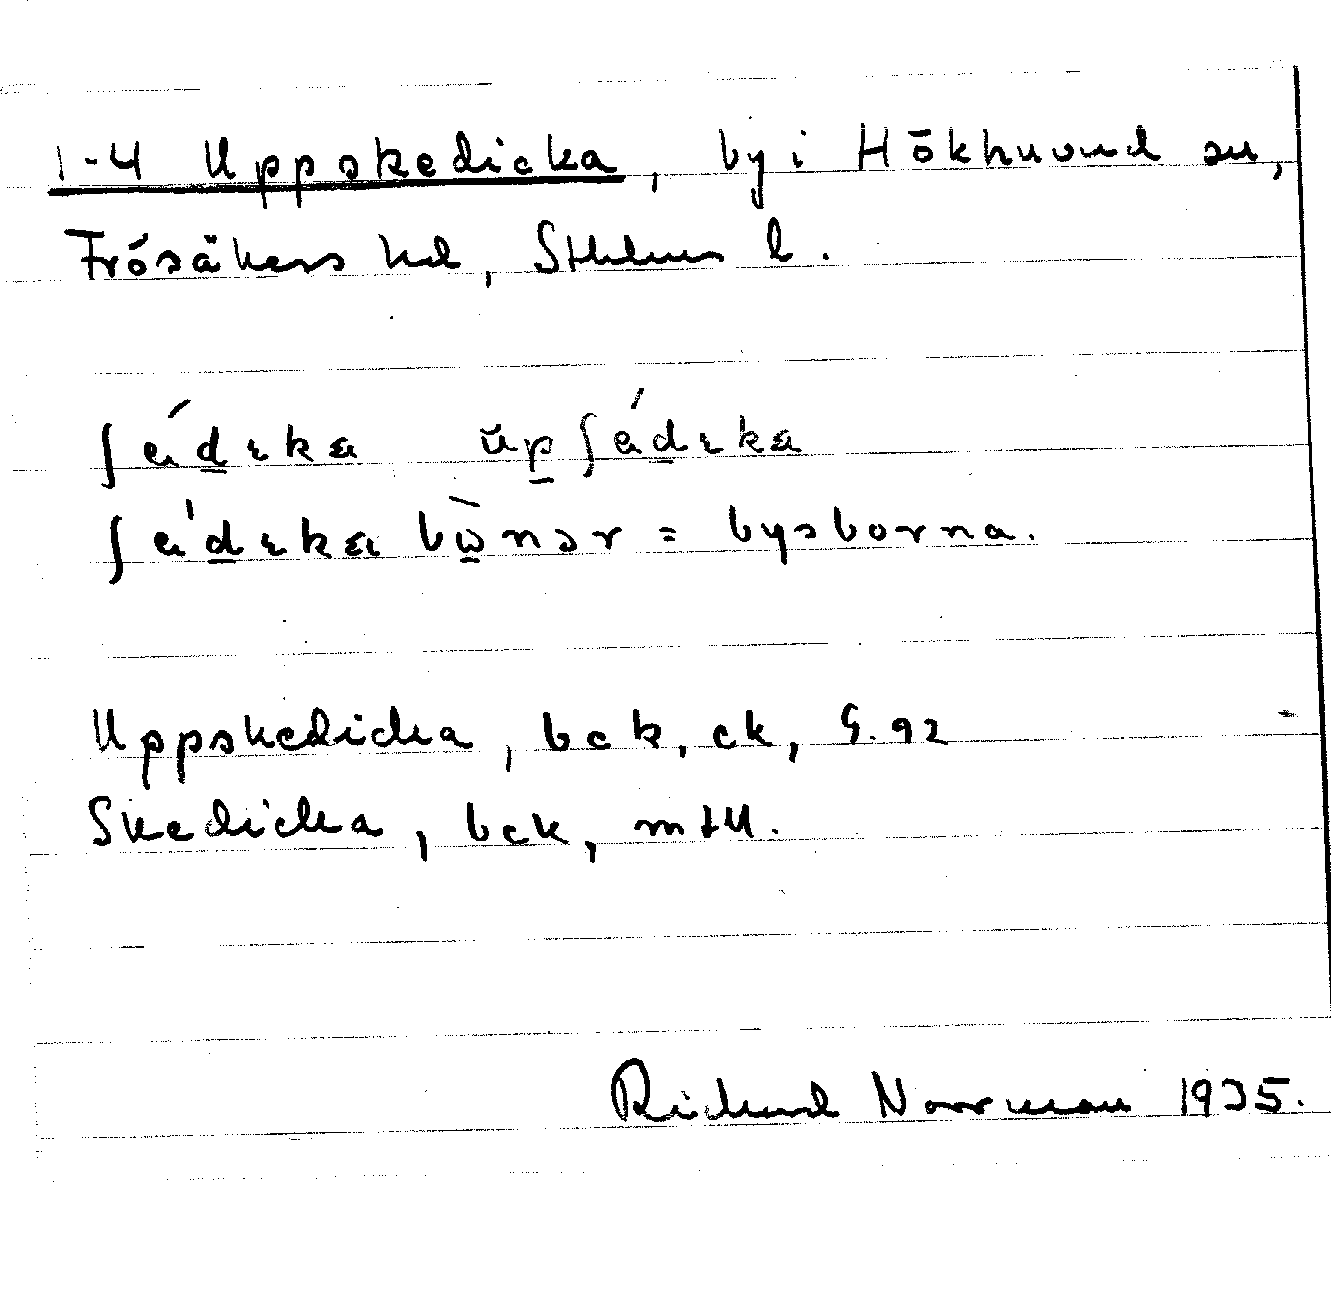 1-4 Uppskedicka, by i Hökhuvud sn,
Frösåkers hd, Sthlms l.
ʃédɩka ŭpʃédɩka
ʃédɩka bὼnər = bysborna.
Uppskedicka, bck, ck, G. 92
Skedicka, bck, mtU.
Richard Norrman 1935.